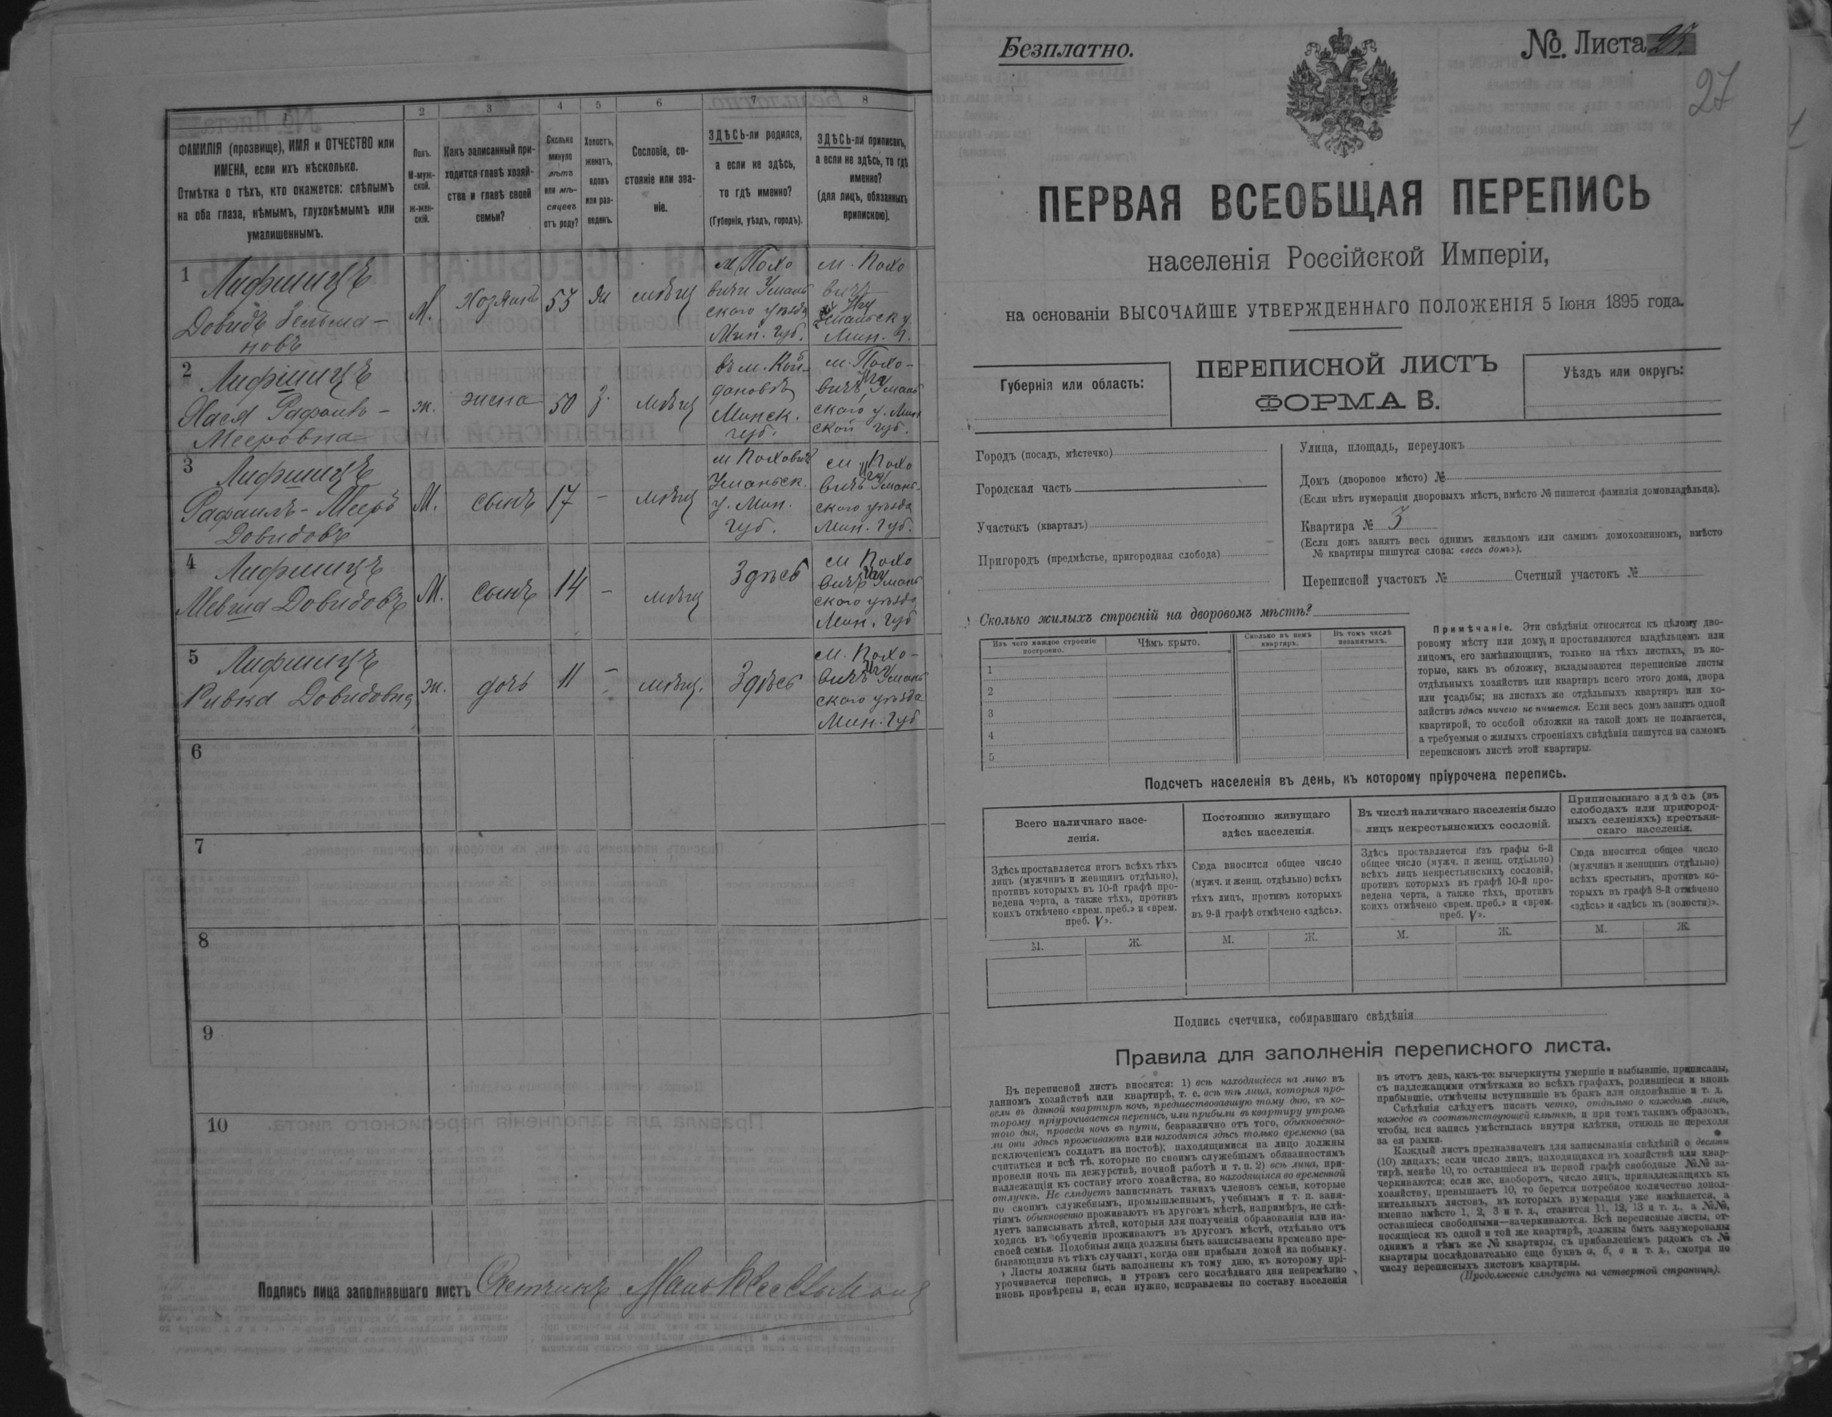 1
2
3
4
5
6
7
8
ФАМИЛІЯ (прозвище), ИМЯ и ОТЧЕСТВО или
ИМЕНА, если ихъ нѣсколько.
Отмѣтка о тѣхъ, кто окажется: слѣпымъ
на оба глаза, нѣмымъ, глухонѣмымъ или
умалишеннымъ.
Полъ.
М-муж-
ской.
Ж-жен-
скій.
Какъ записанный при-
ходится главѣ хозяй-
ства и главѣ своей
семьи?
Сколько
минуло
лѣтъ
или мѣ-
сяцевъ
отъ роду?
Холостъ,
женатъ,
вдовъ
или раз-
веденъ.
Сословіе, со-
стояніе или зва-
ніе.
ЗДѢСЬ-ли родился,
а если не здѣсь,
то гдѣ именно?
(Губернія, уѣздъ, городъ).
ЗДѢСЬ-ли приписанъ,
а если не здѣсь, то гдѣ
именно?
(для лицъ, обязанныхъ
припискою).
1
Лифшицъ
Довидъ
новъ
М.
Хозяинъ
53
м.
Мин. губ.
2
Лифшицъ
Хася
Мееровна
ж.
жена
50
з.
мѣщ
Минск.
губ.
3
Лифшицъ
Рафаилъ-Мееръ
Довидовъ
М.
сынъ
17
-
мѣщ
у. Мин.
губ.
Мин. Губ.
4
Лифшицъ
Довидовъ
М.
сынъ
14
-
мѣщ
Здѣсь
ского уѣзда
Мин. Губ
5
Лифшицъ
Ривка Довидовна
ж.
дочь
11
-
мѣщ.
Здѣсь
ского уѣзда
Мин. Губ
6
7
8
9
10
Подпись лица заполнявшаго листъ Счетчикъ
Безплатно.
№ Листа
27
ПЕРВАЯ ВСЕОБЩАЯ ПЕРЕПИСЬ
населенія Россійской Имперіи,
на основаніи ВЫСОЧАЙШЕ УТВЕРЖДЕННАГО ПОЛОЖЕНІЯ 5 Іюня 1895 года.
Губернія или область:
ПЕРЕПИСНОЙ ЛИСТЪ
ФОРМА В.
Уѣздъ или округъ:
Городъ (посадъ, мѣстечко)
Городская часть
Участокъ (кварталъ)
Пригородъ (предмѣстье, пригородная слобода)
Улица, площадь, переулокъ
Домъ (дворовое мѣсто) №
(Если нѣтъ нумераціи дворовыхъ мѣстъ, вмѣсто № пишется фамилія домовладѣльца).
Квартира № 3
(Если домъ занятъ весь однимъ жильцомъ или самимъ домохозяиномъ, вмѣсто
№ квартиры пишутся слова: «весь домъ»).
Переписной участокъ № Счетный участокъ №
Сколько жилыхъ строеній на дворовомъ мѣстѣ?
Изъ чего каждое строеніе
построено.
Чѣмъ крыто.
Сколько въ немъ
квартиръ.
Въ томъ числѣ
незанятыхъ.
1
2
3
4
5
Примѣчаніе. Эти свѣдѣнія относятся къ цѣлому дво-
ровому мѣсту или дому, и проставляются владѣльцемъ или
лицомъ, его замѣняющимъ, только на тѣхъ листахъ, въ ко-
торые, какъ въ обложку, вкладываются переписные листы
отдѣльныхъ хозяйствъ или квартиръ всего этого дома, двора
или усадьбы; на листахъ же отдѣльныхъ квартиръ или хо-
зяйствъ здѣсь ничего не пишется. Если весь домъ занятъ одной
квартирой, то особой обложки на такой домъ не полагается,
а требуемыя о жилыхъ строеніяхъ свѣдѣнія пишутся на самомъ
переписномъ листѣ этой квартиры.
Подсчетъ населенія въ день, къ которому пріурочена перепись.
Всего наличнаго насе-
ленія.
Постоянно живущаго
здѣсь населенія.
Въ числѣ наличнаго населенія было
лицъ некрестьянскихъ сословій.
Приписаннаго здѣсь (въ
слободахъ или пригород-
ныхъ селеніяхъ) крестьян-
скаго населенія.
Здѣсь проставляется итогъ всѣхъ тѣхъ
лицъ (мужчинъ и женщинъ отдѣльно),
противъ которыхъ въ 10-й графѣ про-
ведена черта, а также тѣхъ, противъ
коихъ отмѣчено «врем. преб.» и «врем.
преб. V».
Сюда вносится общее число
(мужч. и женщ. отдѣльно) всѣхъ
тѣхъ лицъ, противъ которыхъ
въ 9-й графѣ отмѣчено «здѣсь».
Здѣсь проставляется изъ графы 6-й
общее число (мужч. и женщ. отдѣльно)
всѣхъ лицъ некрестьянскихъ сословій,
противъ которыхъ въ графѣ 10-й про-
ведена черта, а также тѣхъ, противъ
коихъ отмѣчено «врем. преб.» и «врем.
преб. V».
Сюда вносится общее число
(мужчинъ и женщинъ отдѣльно)
всѣхъ крестьянъ, противъ ко-
торыхъ въ графѣ 8-й отмѣчено
«здѣсь» и «здѣсь къ (волости)».
М. Ж. М. Ж. М. Ж. М. Ж.
Подпись счетчика, собиравшаго свѣдѣнія
Правила для заполненія переписного листа.
Въ переписной листъ вносятся: 1) всѣ находящіеся на лицо въ
данномъ хозяйствѣ или квартирѣ, т. е. всѣ тѣ лица, которыя про-
вели въ данной квартирѣ ночь, предшествовавшую тому дню, къ ко-
торому пріурочивается перепись, или прибыли въ квартиру утромъ
того дня, проведя ночь въ пути, безразлично отъ того, обыкновенно-
ли они здѣсь проживаютъ или находятся здѣсь только временно (за
исключеніемъ солдатъ на постоѣ); находящимися на лицо должны
считаться и всѣ тѣ, которые по своимъ служебнымъ обязанностямъ
провели ночь на дежурствѣ, ночной работѣ и т. п. 2) всѣ лица, при-
надлежащія къ составу этого хозяйства, но находящіяся во временной
отлучкѣ. Не слѣдуетъ записывать такихъ членовъ семьи, которые
по своимъ служебнымъ, промышленнымъ, учебнымъ и т. п. заня-
тіямъ обыкновенно проживаютъ въ другомъ мѣстѣ, напримѣръ, не слѣ-
дуетъ записывать дѣтей, которыя для полученія образованія или на-
ходясь въ обученіи проживаютъ въ другомъ мѣстѣ, отдѣльно отъ
своей семьи. Подобныя лица должны быть записываемы временно пре-
бывающими въ тѣхъ случаяхъ, когда они прибыли домой на побывку.
Листы должны быть заполнены къ тому дню, къ которому прі-
урочивается перепись, и утромъ сего послѣдняго дня непремѣнно
вновь провѣрены и, если нужно, исправлены по составу населенія
въ этотъ день, какъ-то: вычеркнуты умершіе и выбывшіе, приписаны,
съ надлежащими отмѣтками во всѣхъ графахъ, родившіеся и вновь
прибывшіе, отмѣчены вступившіе въ бракъ или овдовѣвшіе и т. д.
Свѣдѣнія слѣдуетъ писать четко, отдѣльно о каждомъ лицѣ,
каждое въ соотвѣтствующей клѣткѣ, и при томъ такимъ образомъ,
чтобы вся запись умѣстилась внутри клѣтки, отнюдь не переходя
за ея рамки.
Каждый листъ предназначенъ для записыванія свѣдѣній о десяти
(10) лицахъ; если число лицъ, находящихся въ хозяйствѣ или квар-
тирѣ, менѣе 10, то оставшіеся въ первой графѣ свободные №№ за-
черкиваются; если же, наоборотъ, число лицъ, принадлежащихъ къ
хозяйству, превышаетъ 10, то берется потребное количество допол-
нительныхъ листовъ, въ которыхъ нумерація уже измѣняется, а
именно вмѣсто 1, 2, 3 и т. д., ставится 11, 12, 13 и т. д., а №№,
оставшіеся свободными—зачеркиваются. Всѣ переписные листы, от-
носящіеся къ одной и той же квартирѣ, должны быть занумерованы
однимъ и тѣмъ же № квартиры, съ прибавленіемъ рядомъ съ №
квартиры послѣдовательно еще буквъ а, б, в и т. д., смотря по
числу переписныхъ листовъ квартиры.
(Продолженіе слѣдуетъ на четвертой страницѣ).